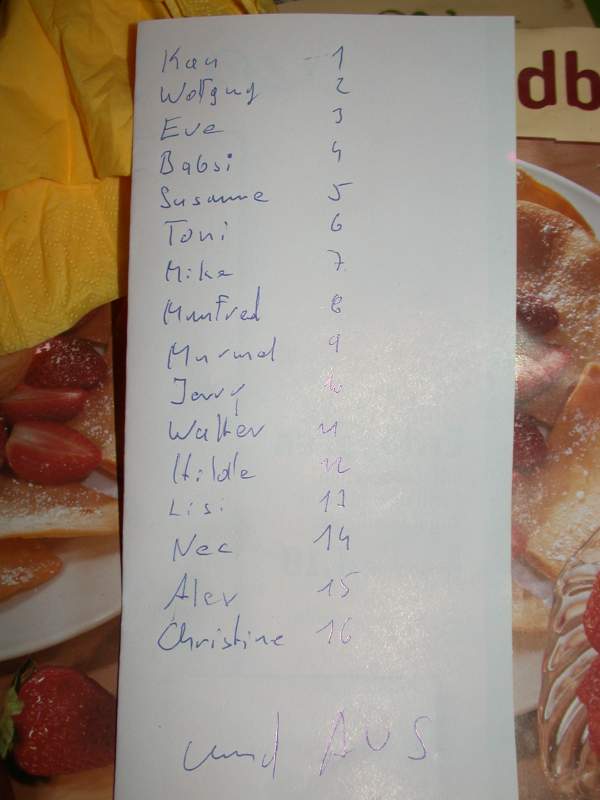 Karu 1
db
Wolfgang 2
Eve 3
Babsi 4
Susanne 5
Toni 6
Mike 7
Manfred 8
9
Jerry 10
Walter 11
Hilde 12
Lisi 13
Nec 14
Alex 15
Christine 16
und AUS